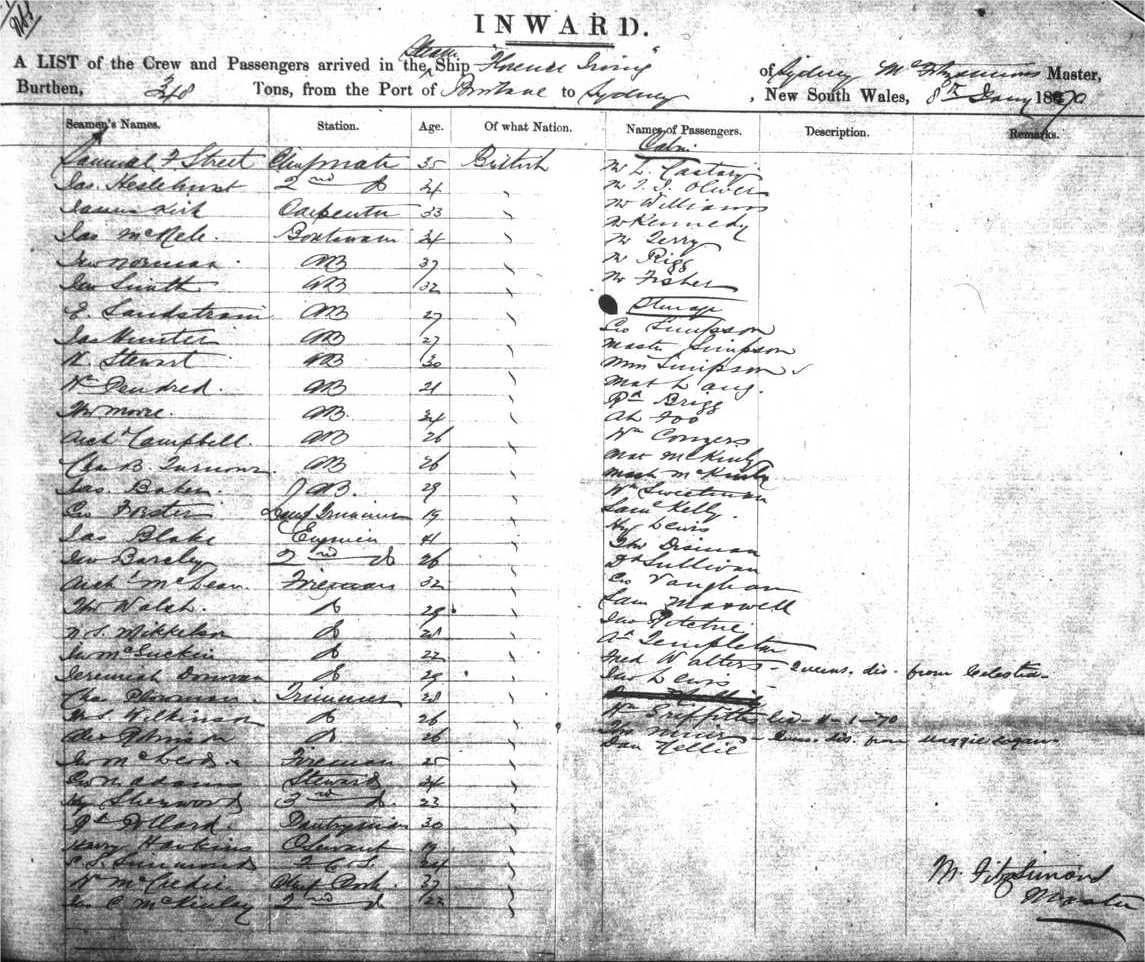 INWARD.
Steam
A LIST of the Crew and Passengers arrived in the Ship "Florence Irving" of Sydney M Fitzsimons Master,
Burthen, 348 Tons, from the Port of Brisbane to Sydney, New South Wales, 8th Jany 1870
Seamen's Names. Station. Age. Of what Nation. Names of Passengers. Description. Remarks.
Cabin
Samuel F Street Chief mate 35 British Mr L.
Jas. Heslehurst 2nd do 34 " Mr T. J. Oliver
James Kirk Carpenter 33 " Mr Williams
Jas Boatswain 34 " Mr Kennedy
Mr Terry
Jno Norman AB 37 " Mr Rigg
Jno Smith AB 32 " Mr Fisher
Steerage
E. Sandstrom AB 27 " Geo Simpson
Jas Hunter AB 27 " Master Simpson
R. Stewart AB 30 " Simpson
Wm Pendred. AB 21 " Mat Lang.
Briggs
Thos Moore. AB. 24 " Ah Foo
Archd Campbell. AB 26 " Wm Congers
Chas B. Turnour AB 26 " McKinly
McKinly
Jas. Baker AB. 29 " Wm Sweetman
Geo Forster Lamp Trimmer 19 " Saml Kelly.
Jas Blake Engineer 41 " Hy Lewis
Jno Barclay 2nd do 26 " Thos
Archd McLean Firemans 32 " Sullivan
Thos Walsh. do 29 " Geo Vaughan
N. S. Mikkelsen do 28 " Sam Maxwell
Jno do 22 " Jno Ritchie
Jeremiah Donovan do 29 " Templeton
Chas Plowman Trimmer 28 " Fred Walters - dis. from Celestia
Wilkinson do 26 " Jno Lewis
Alex Robinson do 26 " Wm Griffiths - 4-1-70
Jno McLeod Fireman 25 " Thos Muir - dis. from Maggie Logan
Geo N. Adams Steward 34 " Dan Kellie
Hy Sherwood 3rd do. 23 "
Pollard. Pantryman 30 "
Henry Hawkins Steward 19 "
C. S. Simmonds 2 C. S. 24 "
Wm McCredie Chief Cook. 37 "
Jno C McKinley 2nd do 22 "
M. Fitzsimons
Master